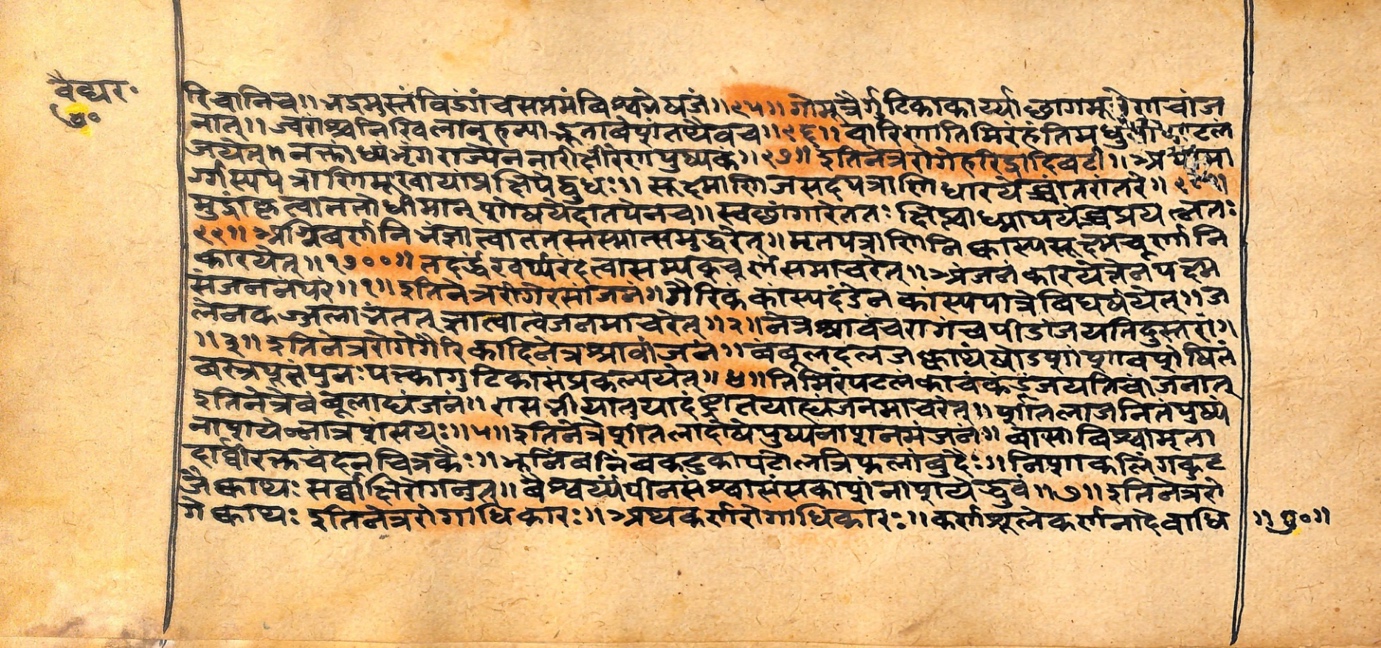 वैद्यर॰
७०
रिचानिच॥ भद्रमुस्तंविडंगंचसप्तमंविश्वभेषजं॥९५॥ गोमूत्रैर्गुटिकाकार्य्याछागमूत्रेणचांज
नात्॥ज्वरांश्चनिखिलान्हन्याद्भूतावेशंतथैवच॥९६॥वारिणातिमिरंहंतिमधु पटल
जयेत्॥नक्तांध्यंभृंगराज्येननारीक्षीरेणपुष्पकं॥९७॥इतिनेत्ररोगेहरिद्रादिवटी॥
र्गास्यपत्राणिमूखायांप्रक्षिपेद्बुधः॥सूक्ष्माणिजसदपत्राणिधारयेच्चांतरांतरे॥
मुद्रांकृत्वाततोधीमान् शोषयेदातपेनच॥स्वच्छांगारेततःक्षिप्त्वाध्मापयेच्चप्रयत्नतः
९९॥अग्निवर्णनिभंज्ञात्वाततस्तस्मात्समुद्धरेत्॥मृतपत्राणिनिष्कास्यसूक्ष्मचूर्णानि
कारयेत्॥१७००॥तदर्द्धंखर्प्परंदत्वासम्यक्चूर्णंसमाचरेत्॥अंजनंकारयेत्तेनपक्ष्म
संजननंपरं॥१॥इतिनेत्ररोगेरसांजनं॥गैरिकंकांस्यदंडेनकांस्यपात्रेविघर्षयेत्॥ज
लेनकज्जलाभंतत्ज्ञात्वात्वंजनमाचरेत्॥२॥नेत्रश्रावंचरागंचपीडांजयतिदुस्तरां॥
॥३॥इतिनेत्ररोगेगैरिकादिनेत्रश्रावांजनं॥बंबूलदलजंक्वाथंषोडशांशावशेषितं
वस्त्रपूतंपुनःपक्त्कागुटिकांसंप्रकल्पयेत्॥४॥तिमिरंपटलंकाचंकंडूंजयतिचांजनात्
इतिनेत्रेबंबूलाद्यंजनं॥रासभीयातुयादंष्ट्रातयात्वंजनमाचरेत्॥शीतलाजनितंपुष्पं
नाशयेन्नात्रसंशयः॥५॥इतिनेत्रेशीतलादोषेपुष्पनाशनमंजनं॥वासाविश्वामृता
दार्वीरक्तचंदनचित्रकैः॥भूनिंबनिंबकटुकापटोलत्रिफलांबुदैः॥निशाकलिंगकुट
जैःक्वाथः सर्व्वाक्षिरोगनुत्॥वैश्वर्य्यंपीनसंश्वासंसकाशंनाशयेद्ध्रुवं॥७॥इतिनेत्ररो
गेक्वाथः इतिनेत्ररोगाधिकारः॥अथकर्णरोगाधिकारः॥कर्णशूलेकर्णनादेबाधि
॥७०॥